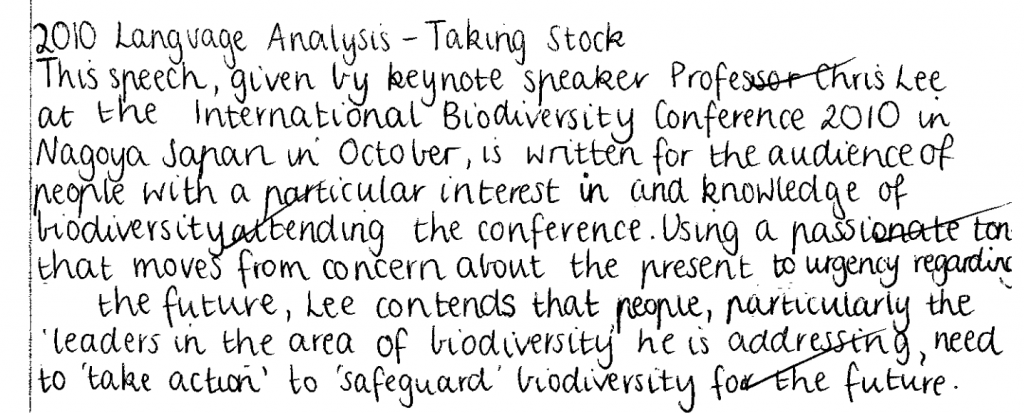 2010 Language Analysis - Taking Stock
This speech, given by keynote speaker Professor Chris Lee
at the International Biodiversity Conference 2010 in
Nagoya Japan in October, is written for the audience of
people with a particular interest in and knowledge of
biodiversity attending the conference. Using a passionate ton
that moves from concern about the present to urgency regarding
the future, Lee contends that people, particularly the
'leaders in the area of biodiversity' he is addressing, need
to 'take action' to 'safeguard' biodiversity for the future.